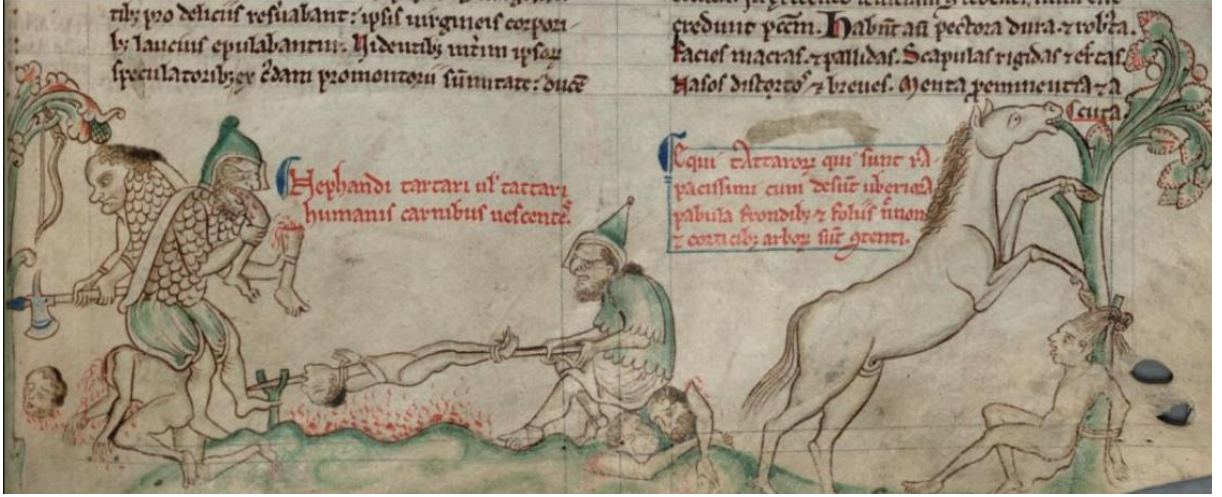 tibꝫ pro deliciis reſuabant: ipſis uirgineis corpori
bꝫ laucius epulabantur.
ſpeculatoribꝫ ex promontorii ſummitate: duce
credunt pccm. Habnt aū pectora dura ⁊ robꝰta.
facies macras ⁊ pallidas. Scapulas rigidas ⁊ erectas.
Naſos diſtortoſ ⁊ breues. Menta ꝓeminentia ⁊ a
cuta.
Nephandi tartari uł tattari
humanis carnibus ueſcenteſ.
Equi tAttaroꝝ qui ſunt rA
paciſſimi cum deſūt uberiorA
pabula frondibꝫ ⁊ foliiſ
⁊ corticibꝫ arboꝝ ſūt 9tenti.